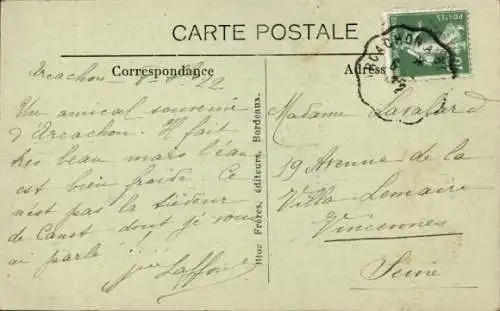 CARTE POSTALE
POSTES
ARCACHON A
Correspondance
Adresse
Arcachon 22
Un amical souvenir
d'Arcachon. Il fait
très beau mais l'eau
est bien froide Ce
n'est pas la tiédeur
de Canet dont je vous
ai parlé
Laffon
Bloc Frères, éditeurs, Bordeaux.
Madame Lavabard
19 Avenue de la
Villa-Lemaire
Vincennes
Seine